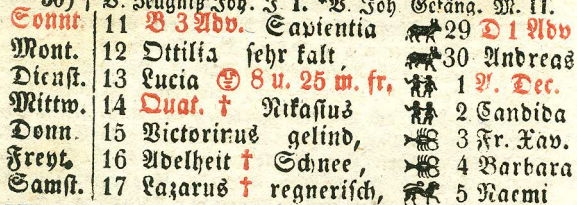 B. Zeugniß Joh. J. 1. Joh Gefäng. M. 11.
Sonnt 11 B 3 Adv. Sapientia 29 D 1 Adv
Mont. 12 Ottilia sehr kalt 30 Andreas
Dienst. 13 Lucia 8 u. 25 m. fr. 1 N. Dec.
Mittw. 14 Quat. † Nikasius 2 Candida
Donn. 15 Victorinus gelind, 3 Fr. Xav.
Freyt. 16 Adelheit † Schnee, 4 Barbara
Samst. 17 Lazarus † regnerisch, 5 Naemi